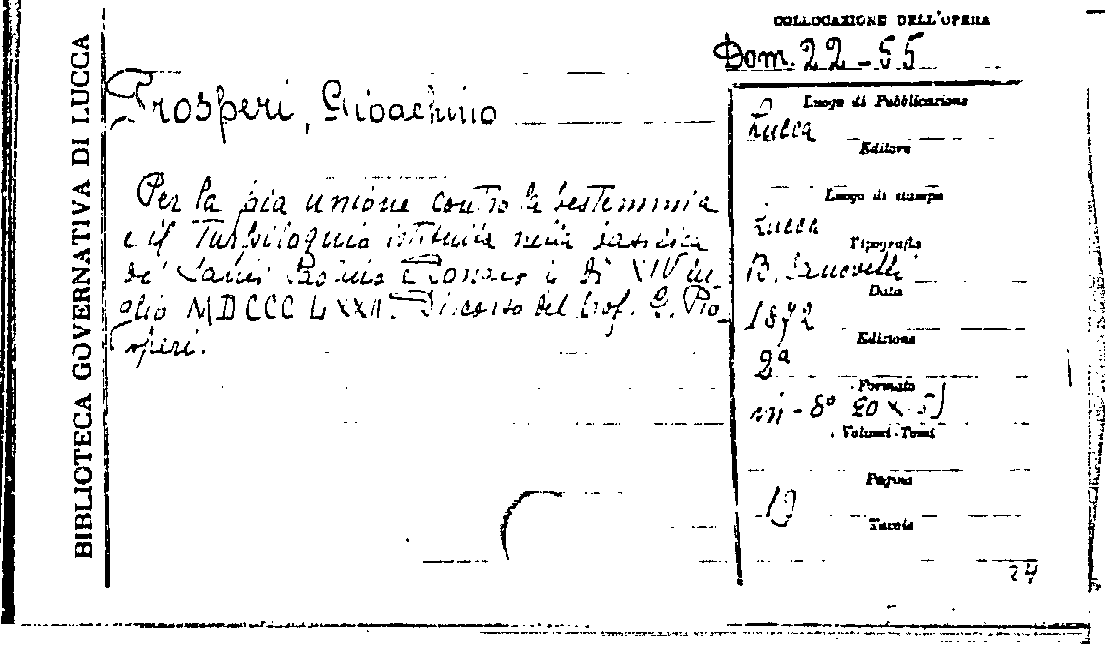 BIBLIOTECA GOVERNATIVA DI LUCCA
COLLOCAZIONE DELL'OPERA
Dom. 22-55
Prosperi, Gioachino
Per la pia unione contro la bestemmia
e il Turpiloquio istituita nella basilica
dei Santi Paolino e Donato il dì XIV lu-
glio MDCCCLXXII. Discorso del prof. G. Pro-
speri.
Luogo di Pubblicazione
Lucca
Editore
Luogo di stampa
Lucca
Tipografia
B. Canovetti
Data
1872
Edizione
2ª
Formato
in-8°
Volumi-Tomi
Pagine
Tavole
24